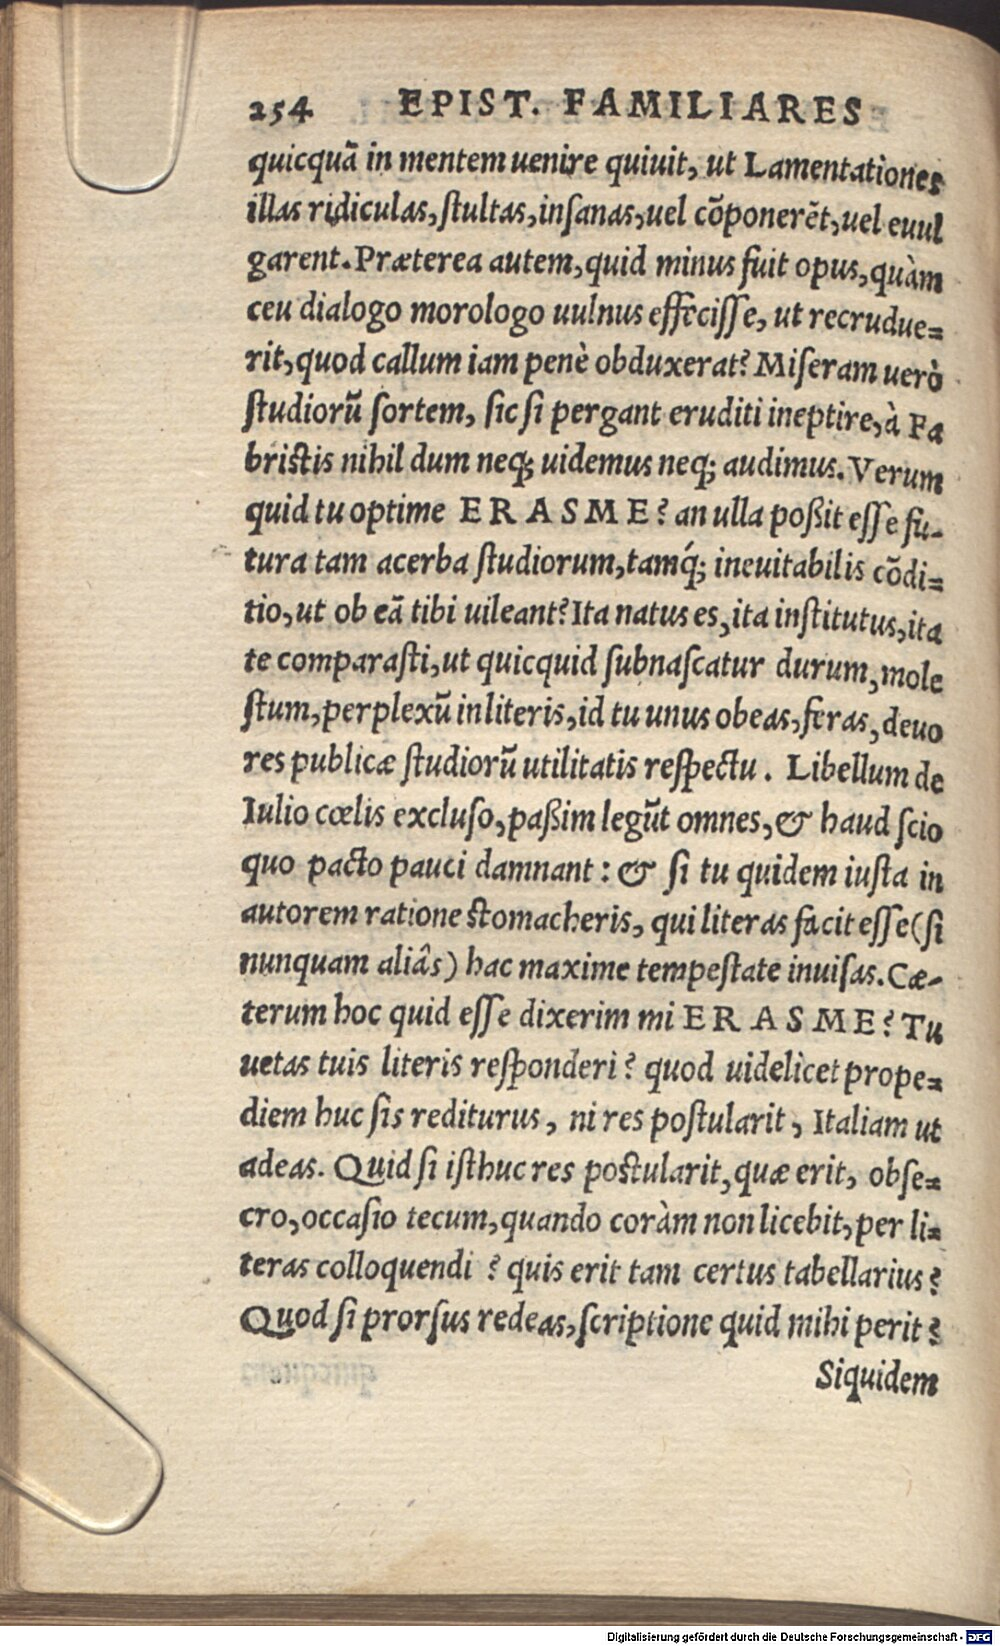 254 EPIST. FAMILIARES
quicquã in mentem uenire quiuit, ut Lamentationes
illas ridiculas, ſtultas, inſanas, uel cõponerẽt, uel euul
garent. Præterea autem, quid minus fuit opus, quàm
ceu dialogo morologo uulnus effeciſſe, ut recrudue=
rit, quod callum iam penè obduxerat? Miſeram uerò
ſtudiorũ ſortem, ſic ſi pergant eruditi ineptire, à Fa
briſtis nihil dum neq; uidemus neq; audimus. Verum
quid tu optime ERASME? an ulla poßit eſſe fu-
tura tam acerba ſtudiorum, tamq́; ineuitabilis cõdi=
tio, ut ob eã tibi uileant? Ita natus es, ita inſtitutus, ita
te comparaſti, ut quicquid ſubnaſcatur durum, mole
ſtum, perplexũ in literis, id tu unus obeas, feras, deuo
res publicæ ſtudiorũ utilitatis reſpectu. Libellum de
Iulio cœlis excluſo, paßim legũt omnes, & haud ſcio
quo pacto pauci damnant: & ſi tu quidem iuſta in
autorem ratione ſtomacheris, qui literas facit eſſe (ſi
nunquam aliâs) hac maxime tempeſtate inuiſas. Cæ-
terum hoc quid eſſe dixerim mi ERASME? Tu
uetas tuis literis reſponderi? quod uidelicet prope=
diem huc ſis rediturus, ni res poſtularit, Italiam ut
adeas. Quid ſi iſthuc res poſtularit, quæ erit, obſe=
cro, occaſio tecum, quando coràm non licebit, per li=
teras colloquendi? quis erit tam certus tabellarius?
Quod ſi prorſus redeas, ſcriptione quid mihi perit?
Siquidem
Digitalisierung gefördert durch die Deutsche Forschungsgemeinschaft - DFG